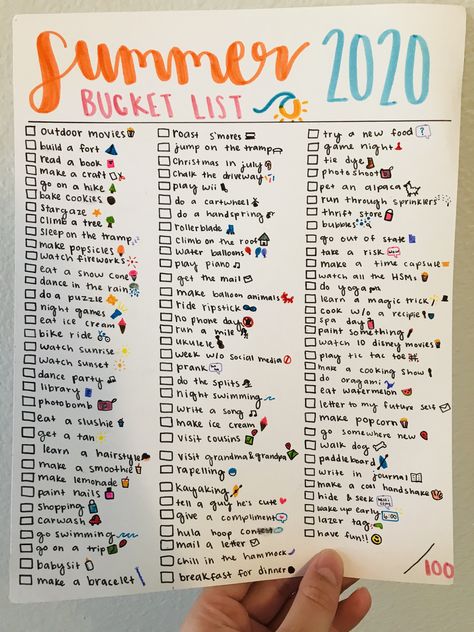 Summer 2020
BUCKET LIST
outdoor movies
build a fort
read a book
make a craft
go on a hike
bake cookies
stargaze
climb a tree
sleep on the tramp
make popsicles
watch fireworks
eat a snow cone
dance in the rain
do a puzzle
night games
eat ice cream
bike ride
watch sunrise
watch sunset
dance party
library
photobomb
eat a slushie
get a tan
learn a hairstyle
make a smoothie
make lemonade
paint nails
shopping
carwash
go swimming
go on a trip
babysit
make a bracelet
roast s'mores
jump on the tramp
Christmas in july
chalk the driveway
play wii
do a cartwheel
do a handspring
rollerblade
climb on the roof
water balloons
play piano
get the mail
make balloon animals
ride ripstick
no phone day
run a mile
ukulele
week w/o social media
prank
do the splits
night swimming
write a song
make ice cream
visit cousins
visit grandma & grandpa
rapelling
kayaking
tell a guy he's cute
give a compliment
hula hoop contest
mail a letter
chill in the hammock
breakfast for dinner
try a new food
game night
tie dye
photoshoot
pet an alpaca
run through sprinklers
thrift store
bubbles
go out of state
take a risk
make a time capsule
watch all the HSMs
do yoga
learn a magic trick
cook w/o a recipie
spa day
paint something
watch 10 disney movies
play tic tac toe
make a cooking show
do oragami
eat watermelon
letter to my future self
make popcorn
go somewhere new
walk dog
paddleboard
write in journal
make a cool handshake
hide & seek
wake up early 6:00
lazer tag
have fun!!
/100